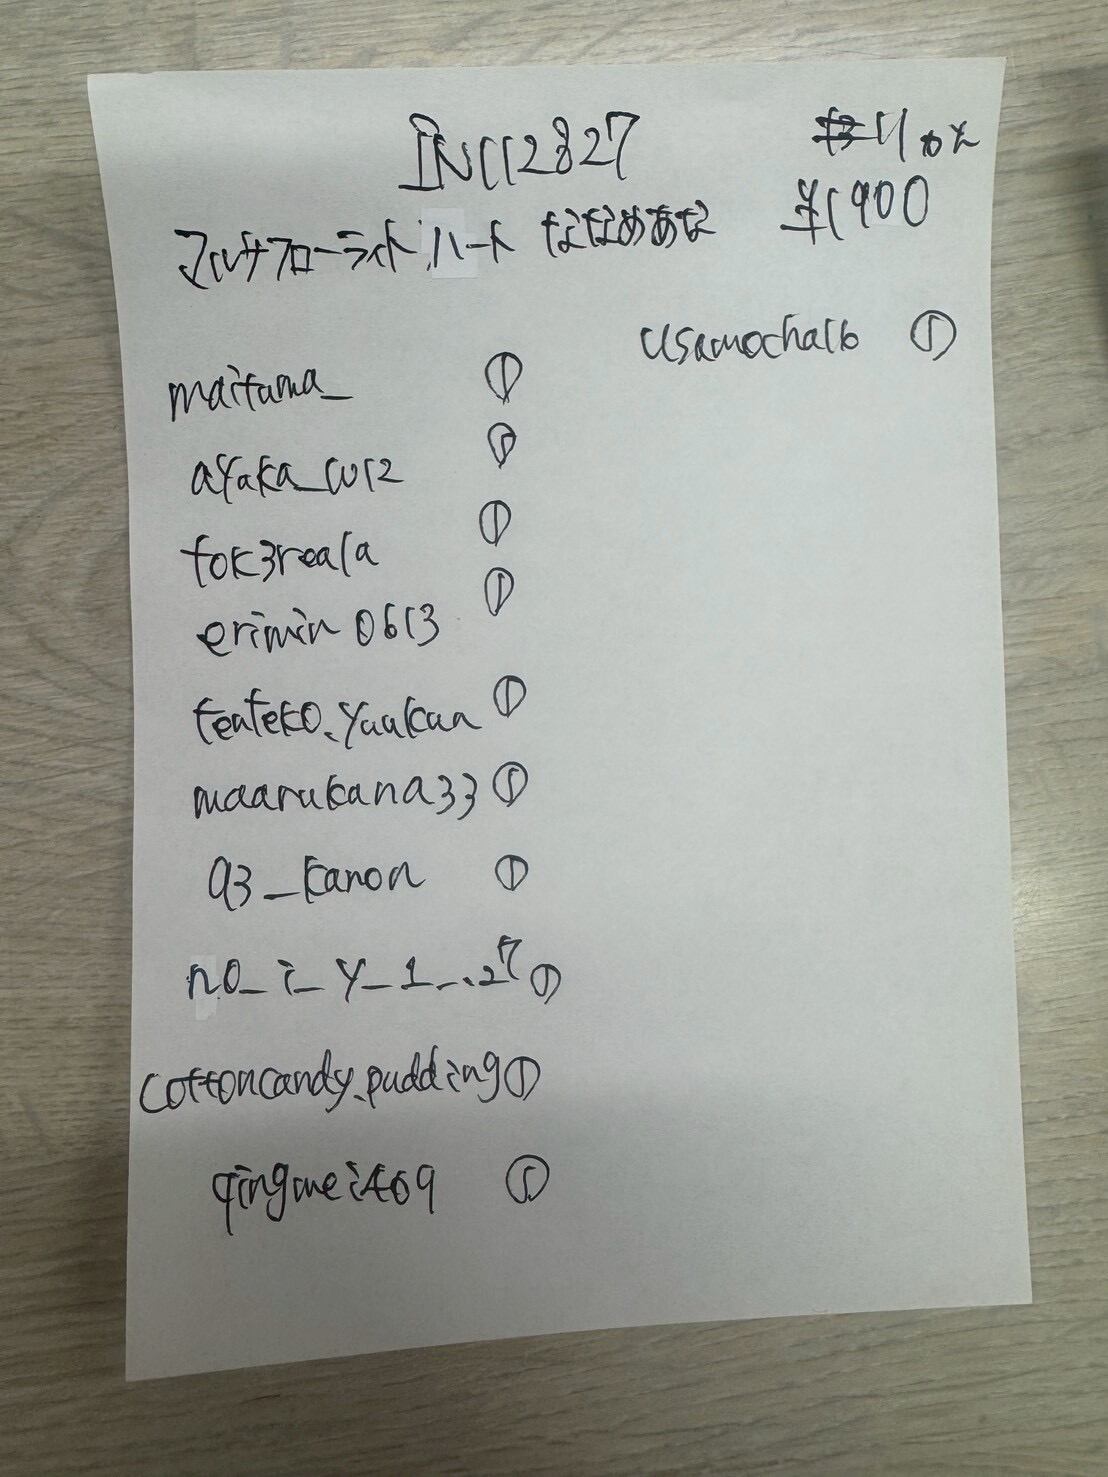 INC12827
11コ
マルチフローライト ハート ななめあな ¥1900
maitama_ ①
ayaka_w12 ①
tok3reala ①
erimin0613 ①
tenteko.yuukan ①
maarukana33 ①
93_kanon ①
n0_i_y_1_.27 ①
cottoncandy.pudding ①
qingmei469 ①
usamocha16 ①